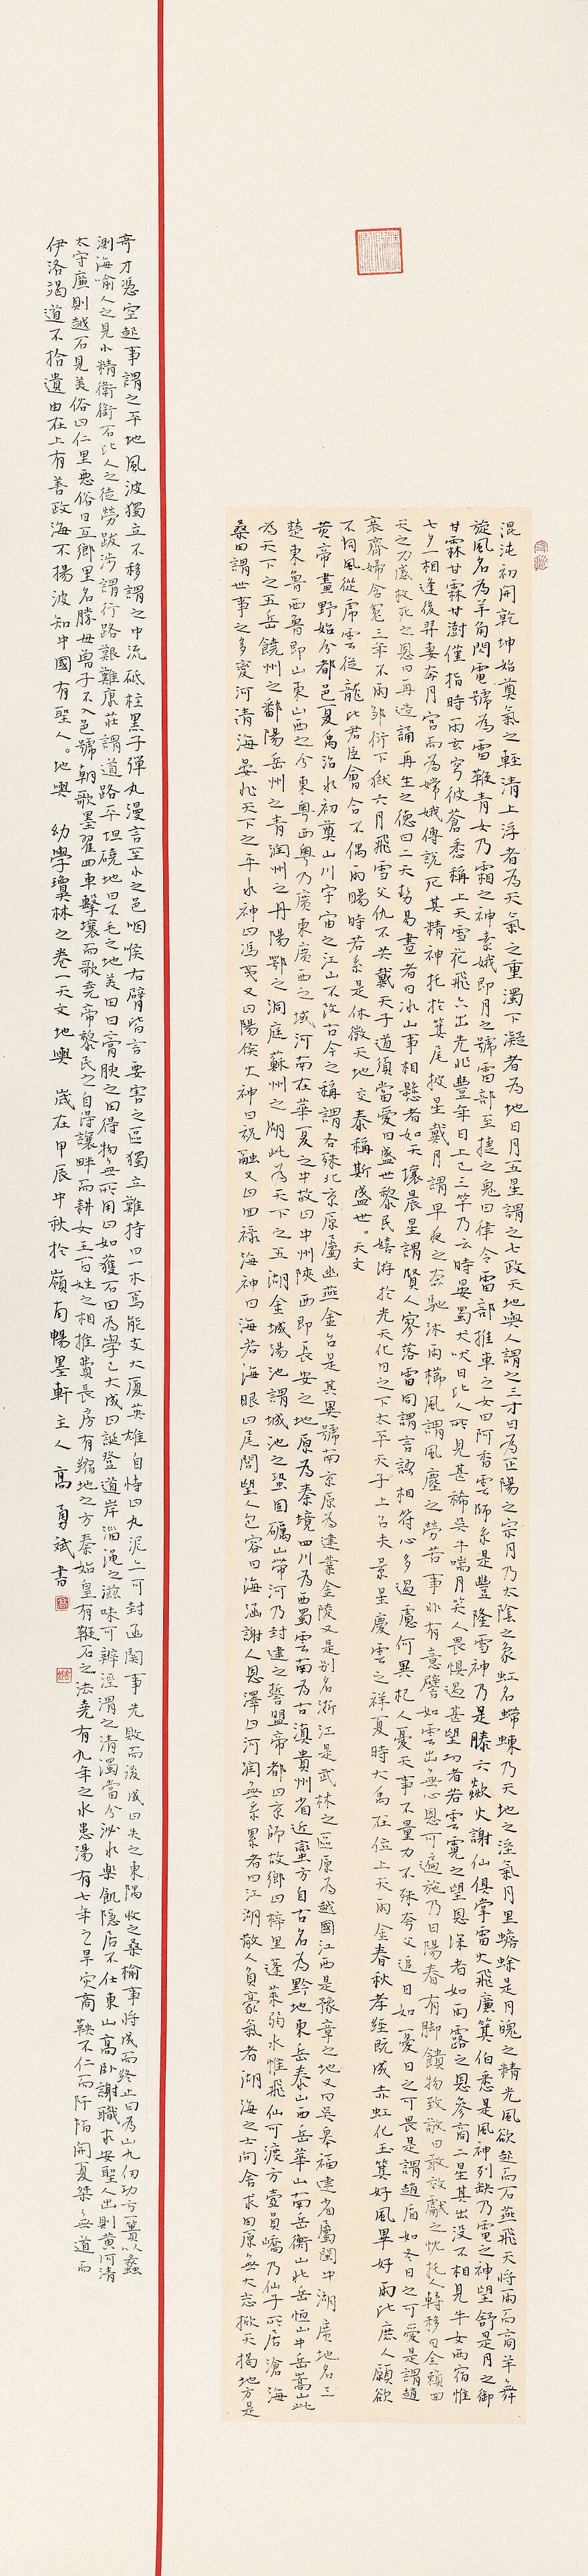 混沌初開乾坤始奠氣之輕清上浮者為天氣之重濁下凝者為地日月五星謂之七政天地與人謂之三才日為正陽之宗月乃太陰之象虹名螮蝀乃天地之淫氣月里蟾蜍是月魄之精光風欲起而石燕飛天將雨而商羊舞
旋風名為羊角閃電號為雷鞭青女乃霜之神素娥即月之號雷部至捷之鬼曰律令雷部推車之女曰阿香雲師系是豐隆雪神乃是滕六歘火謝仙俱掌雷火飛廉箕伯悉是風神列缺乃電之神望舒是月之御
甘霖甘澍僅指時雨玄穹彼蒼悉稱上天雪花飛六出先兆豐年日上已三竿乃云時晏蜀犬吠日比人所見甚稀吳牛喘月笑人畏懼過甚望切者若雲霓之望恩深者如雨露之恩參商二星其出沒不相見牛女兩宿惟
七夕一相逢後羿妻奔月宮而為嫦娥傳說死其精神托於箕尾披星戴月謂早夜之奔馳沐雨櫛風謂風塵之勞苦事非有意譬如雲出無心恩可遍施乃曰陽春有腳饋物致敬曰敢效獻之忱托人轉移曰全賴回
天之力感救死之恩曰再造誦再生之德曰二天勢易盡者曰冰山事相懸者如天壤晨星謂賢人寥落雷同謂言語相符心多過慮何異杞人憂天事不量力不殊夸父追日如夏日之可畏是謂趙盾如冬日之可愛是謂趙
衰齊婦含冤三年不雨鄒衍下獄六月飛雪父仇不共戴天子道須當愛日盛世黎民嬉游於光天化日之下太平天子上召夫景星慶雲之祥夏時大禹在位上天雨金春秋孝經既成赤虹化玉箕好風畢好雨比庶人願欲
不同風從虎雲從龍比君臣會合不偶雨暘時若系是休徵天地交泰稱斯盛世。天文
黃帝畫野始分都邑夏禹治水初奠山川宇宙之江山不改古今之稱謂各殊北京原屬幽燕金台是其異號南京原為建業金陵又是別名浙江是武林之區原為越國江西是豫章之地又曰吳皋福建省屬閩中湖廣地名三
楚東魯西魯即山東山西之分東粵西粵乃廣東廣西之域河南在華夏之中故曰中州陝西即長安之地原為秦境四川為西蜀雲南為古滇貴州省近蠻方自古名為黔地東岳泰山西岳華山南岳衡山北岳恒山中岳嵩山此
為天下之五岳饒州之鄱陽岳州之青潤州之丹陽鄂之洞庭蘇州之湖此為天下之五湖金城湯池謂城池之鞏固礪山帶河乃封建之誓盟帝都曰京師故鄉曰梓里蓬萊弱水惟飛仙可渡方壺員嶠乃仙子所居滄海
桑田謂世事之多變河清海晏兆天下之平水神曰馮夷又曰陽侯火神曰祝融又曰回祿海神曰海若海眼曰尾閭望人包容曰海涵謝人恩澤曰河潤無系累者曰江湖散人負豪氣者湖海之士問舍求田原無大志掀天揭地方是
奇才憑空起事謂之平地風波獨立不移謂之中流砥柱黑子彈丸漫言至小之邑咽喉右臂皆言要害之區獨立難持曰一木焉能支大廈英雄自恃曰丸泥亦可封函關事先敗而後成曰失之東隅收之桑榆事將成而終止曰為山九仞功虧一簣以蠡
測海喻人之見小精衛銜石比人之徒勞跋涉謂行路艱難康莊謂道路平坦磽地曰不毛之地美田曰膏腴之田得物無所用曰如獲石田為學已大成曰誕登道岸淄澠之滋味可辨涇渭之清濁當分泌水樂飢隱居不仕東山高臥謝職求安聖人出則黃河清
太守廉則越石見美俗曰仁里惡俗曰互鄉里名勝母曾子不入邑號朝歌墨翟回車擊壤而歌堯帝黎民之自得讓畔而耕文王百姓之相推費長房有縮地之方秦始皇有鞭石之法堯有九年之水患湯有七年之旱災商鞅不仁而阡陌開夏桀無道而
伊洛竭道不拾遺由在上有善政海不揚波知中國有聖人。地輿 幼學瓊林之卷一天文地輿 歲在甲辰中秋於嶺南暢墨軒主人高勇斌書